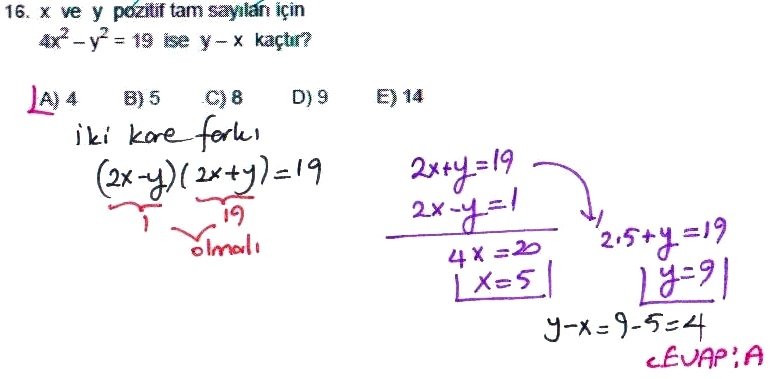 16. x ve y pozitif tam sayıları için
4x² – y² = 19 ise y – x kaçtır?
A) 4 B) 5 C) 8 D) 9 E) 14
iki kare farkı
(2x-y)(2x+y)=19
1 19
olmalı
2x+y=19
2x-y=1
4x=20
x=5
2.5+y=19
y=9
y-x=9-5=4
CEVAP:A